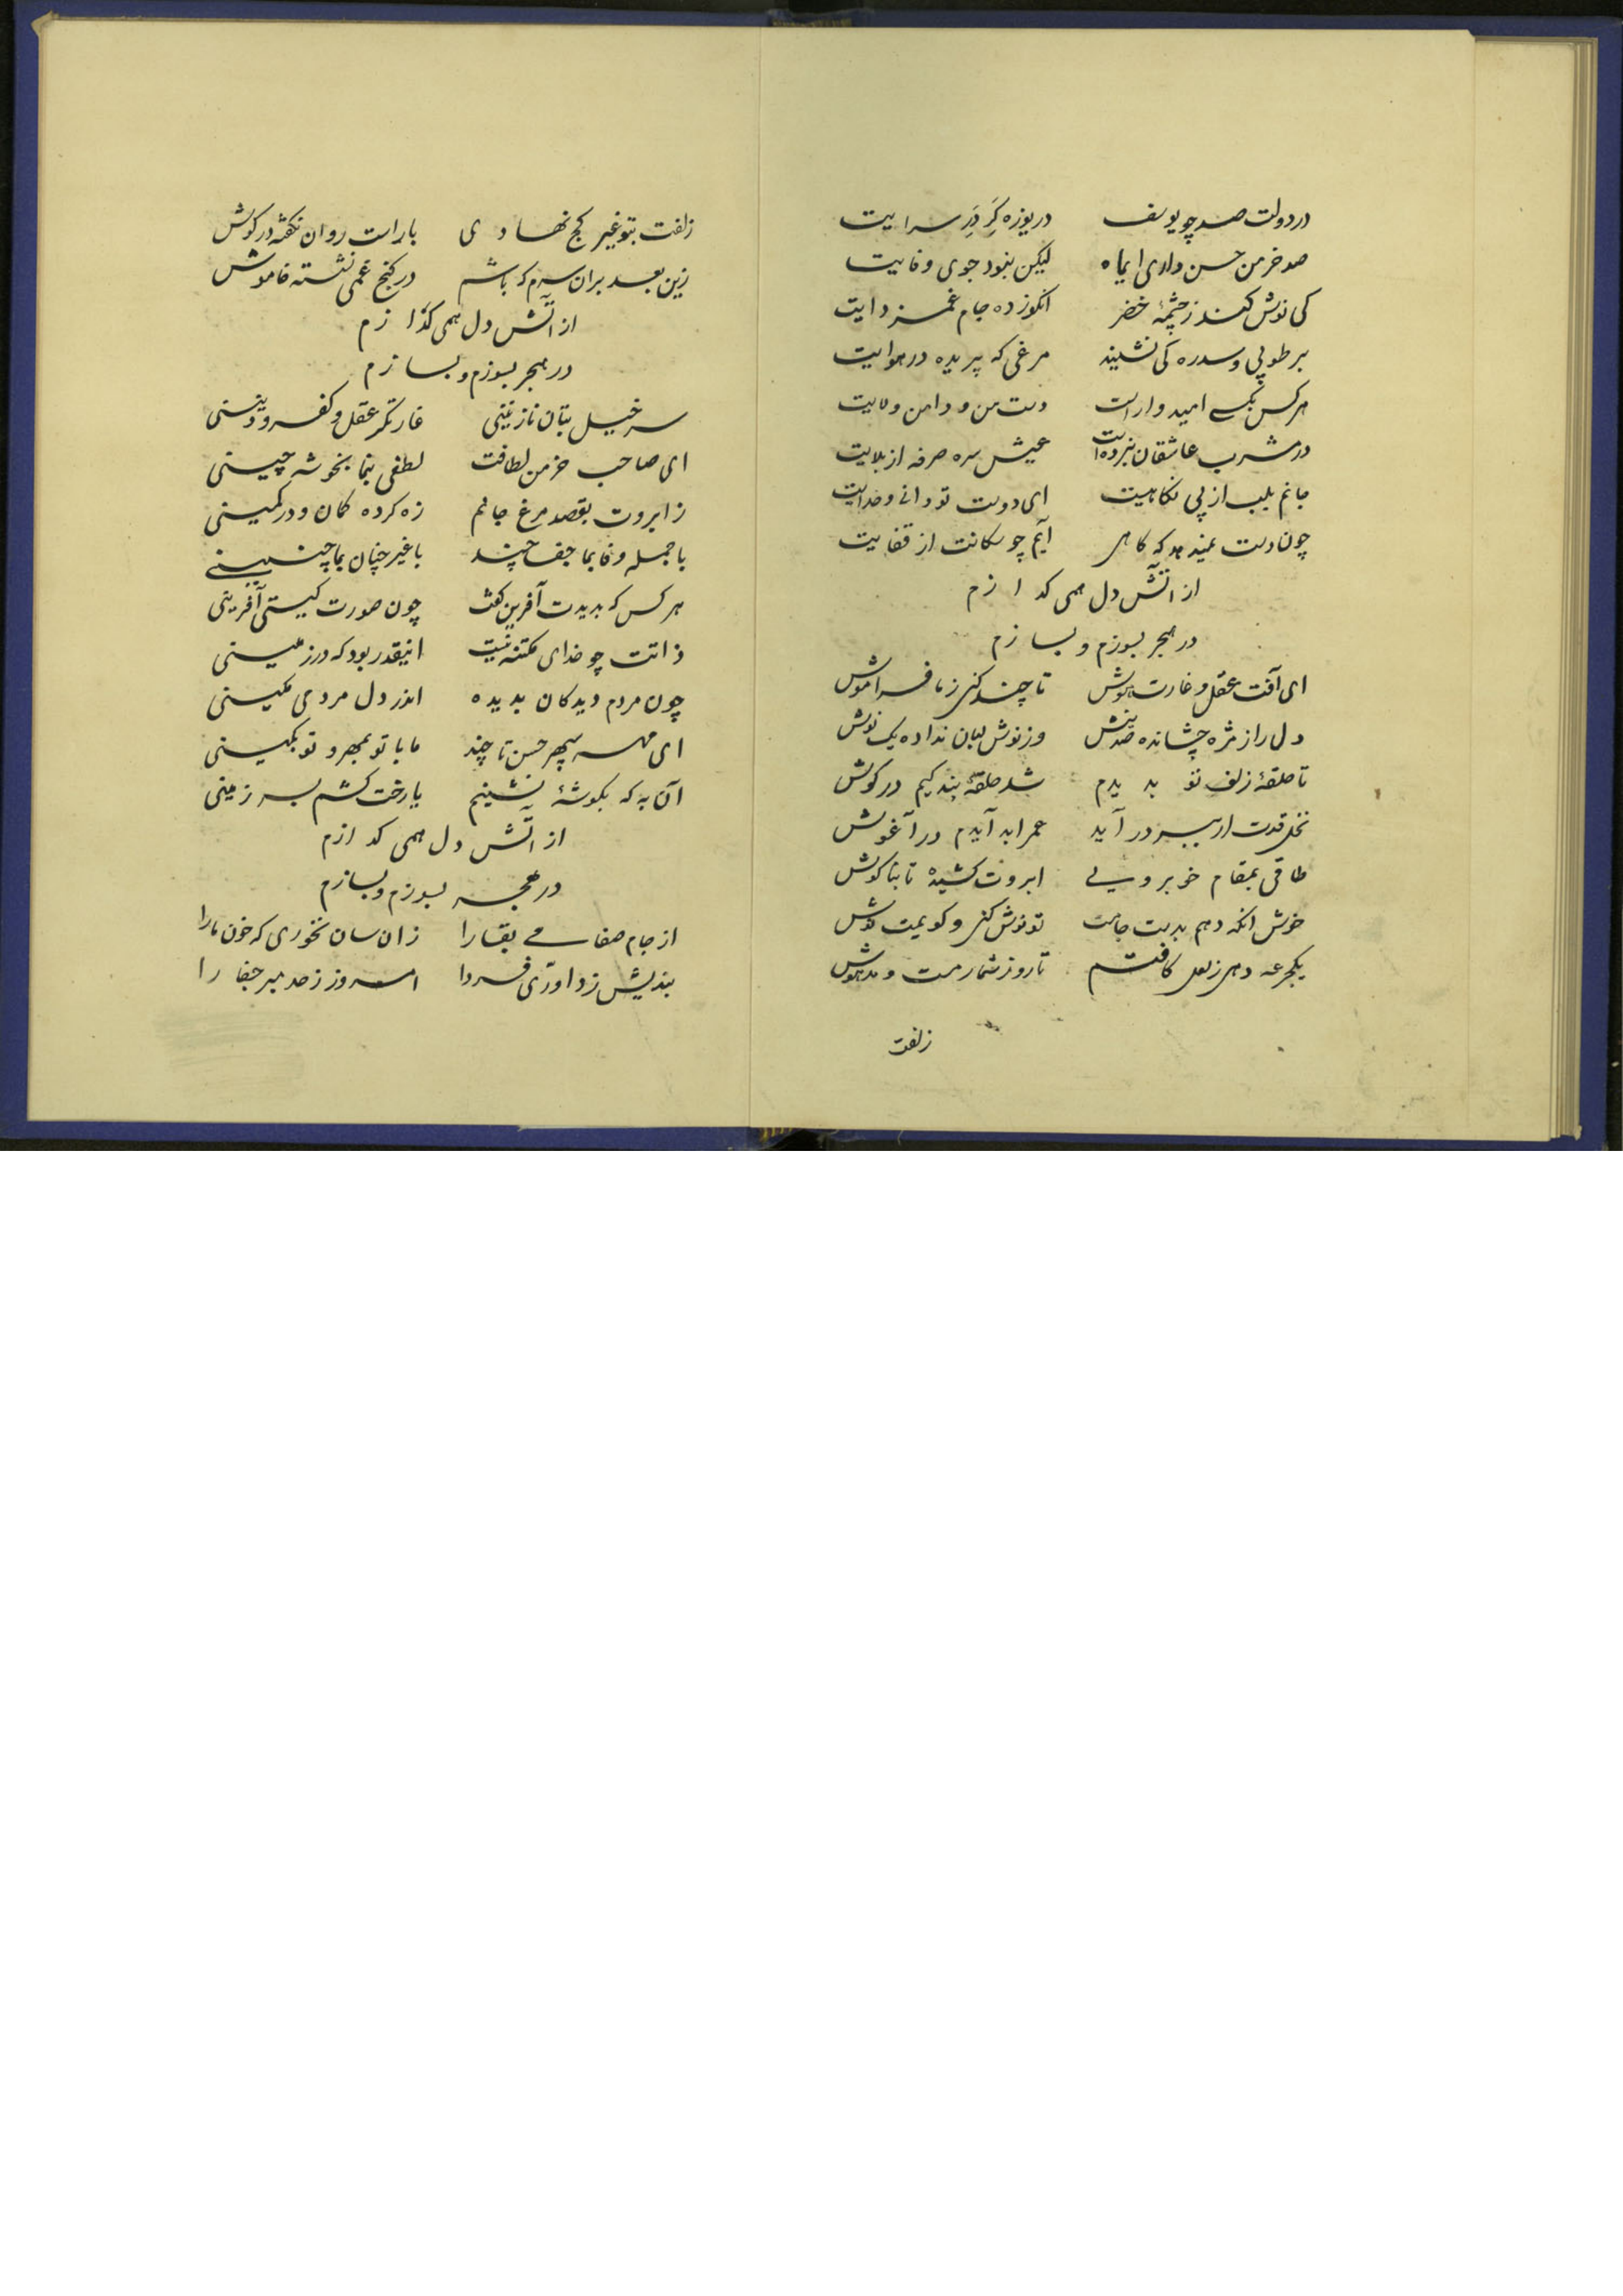 در دولت صد چو یوسف دریوزه گر در سرایت
صد خرمن حسن داری ایماه لیکن نبود جوی وفایت
کی نوش کند ز چشمهٔ خضر انکو زده جام غمزدایت
بر طوبی و سدره کی نشیند مرغی که پریده در هوایت
هر کس بکسی امیدوار است دست من و دامن ولایت
در مشرب عاشقان نبرده است عیش سره صرفه از بلایت
جانم بلب از پی نکاهیت ای دوست تو دانی و خدایت
چون دست نمیدهد که کاهی آیم چو سکانت از قفایت
از آتش دل همی کدازم
در هجر بسوزم و بسازم
ای آفت عقل و غارت هوش تا چند کنی ز ما فراموش
دل را ز مژه چشانده صد نیش وز نوش لبان نداده یک نوش
تا حلقهٔ زلف تو بدیدم شد حلقهٔ بندکیم در کوش
نخل قدت ار ببر در آید عمر ابد آیدم در آغوش
طاقی بمقام خوبرویی ابروت کشیده تا بناکوش
خوش انکه دهم بدست جامت تو نوش کنی و کویمت نوش
یکجرعه دهی ز لعل کافتم تا روز شمار مست و مدهوش
زلفت
زلفت بتو غیر کج نهادی با راست روان نکفته در کوش
زین بعد بران سرم که باشم در کنج غمی نشسته خاموش
از آتش دل همی کدازم
در هجر بسوزم و بسازم
سر خیل بتان نازنینی غارتکر عقل و کفر و دینی
ای صاحب خرمن لطافت لطفی بنما بخوشه چینی
ز ابروت بقصد مرغ جانم زه کرده کمان و در کمینی
با جمله وفا بما جفا چند با غیر چنان بما چنینی
هر کس که بدیدت آفرین کفت چون صورت کیستی آفرینی
ذاتت چو خدای مکتنه نیست اینقدر بود که در زمینی
چون مردم دیدکان بدیده اندر دل مردمی مکینی
ای مه سپهر حسن تا چند ما با تو بمهر و تو بکینی
آن به که بکوشهٔ نشینم یا رخت کشم بسر زمینی
از آتش دل همی کدازم
در هجر بسوزم و بسازم
از جام صفا می بقا را زان سان نخوری که خون ما را
بندیش ز داوری فردا امروز ز حد مبر جفا را